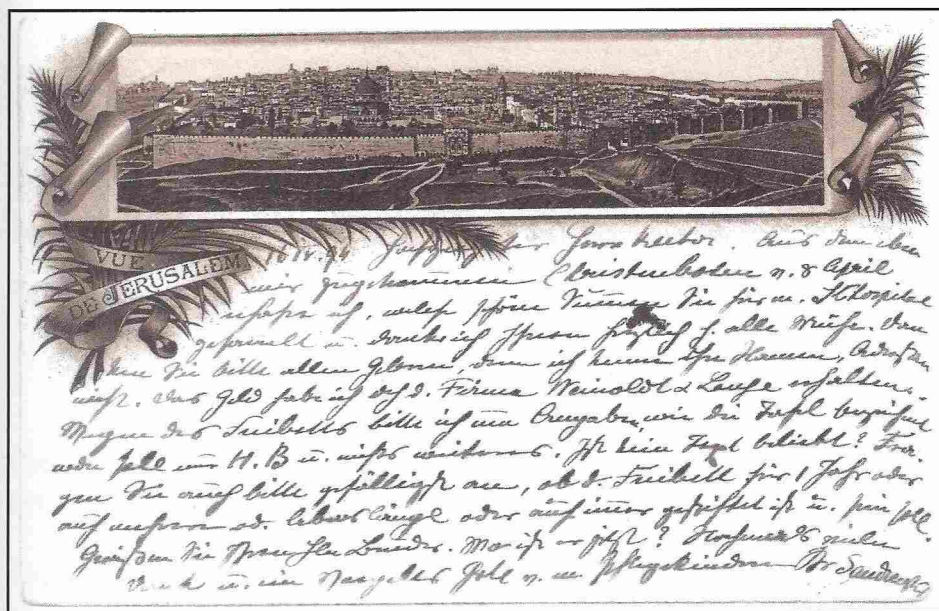 VUE
DE JERUSALEM
16 IV. 94 Herr Rektor. Aus dem eben
mir zugekommenen Christenboten v. 8 April
ersehe ich, welch schöne Summe Sie für m. KHospital
gesammelt u. danke ich Ihnen herzlich f. alle Mühe. Dan
ken Sie bitte allen Gebern, denn ich kenne ihre Namen, Adressen
nicht. Das Geld habe ich dch d. Firma Weinoldt & Lange erhalten.
Wegen des Freibetts bitte ich um Angabe, wie die Tafel bezeichnet
werden soll nur H. B u. nichts weiteres. Ist kein Text beliebt? Fra
gen Sie auch bitte gefälligst an, ob d. Freibett für 1 Jahr oder
auf mehrere od. lebenslängl oder auf immer gestiftet ist u. sein soll.
Grüßen Sie Ihren Hn Bruder. Wo ist er jetzt? Nochmals vielen
Dank u. ein Vergelts Gott v. m. Pflegekindern Dr Sandreczky